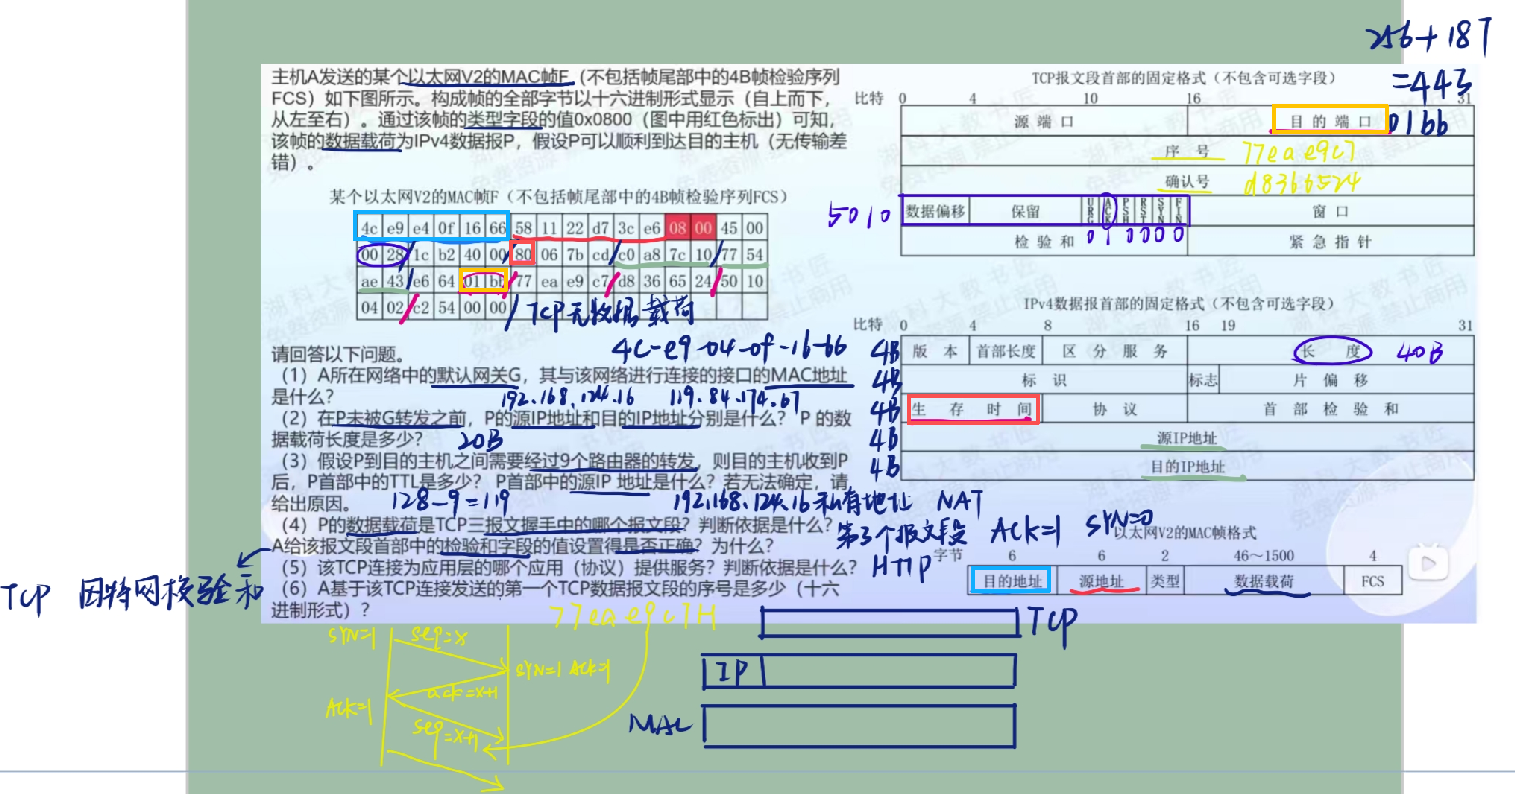 256+187
=443
主机A发送的某个以太网V2的MAC帧F（不包括帧尾部中的4B帧检验序列
FCS）如下图所示。构成帧的全部字节以十六进制形式显示（自上而下，
从左至右）。通过该帧的类型字段的值0x0800（图中用红色标出）可知，
该帧的数据载荷为IPv4数据报P，假设P可以顺利到达目的主机（无传输差
错）。
某个以太网V2的MAC帧F（不包括帧尾部中的4B帧检验序列FCS）
4c e9 e4 0f 16 66 58 11 22 d7 3c e6 08 00 45 00
00 28 1c b2 40 00 80 06 7b cd c0 a8 7c 10 77 54
ae 43 e6 64 01 bb 77 ea e9 c7 d8 36 65 24 50 10
04 02 c2 54 00 00
TCP无数据载荷
请回答以下问题。
4C-e9-04-0f-16-66
（1）A所在网络中的默认网关G，其与该网络进行连接的接口的MAC地址
是什么？
192.168.124.16 119.84.174.67
（2）在P未被G转发之前，P的源IP地址和目的IP地址分别是什么？ P 的数
据载荷长度是多少？
20B
（3）假设P到目的主机之间需要经过9个路由器的转发，则目的主机收到P
后，P首部中的TTL是多少？ P首部中的源IP 地址是什么？若无法确定，请
给出原因。
128-9=119
192.168.124.16 私有地址 NAT
（4）P的数据载荷是TCP三报文握手中的哪个报文段？判断依据是什么？
第3个报文段 ACK=1 SYN=0
A给该报文段首部中的检验和字段的值设置得是否正确？为什么？
TCP 因特网校验和
（5）该TCP连接为应用层的哪个应用（协议）提供服务？判断依据是什么？
HTTP
（6）A基于该TCP连接发送的第一个TCP数据报文段的序号是多少（十六
进制形式）？
77eae9c7H
TCP报文段首部的固定格式（不包含可选字段）
比特 0 4 10 16 31
源端口 目的端口 01bb
序号 77eae9c7
确认号 d8366524
5010 数据偏移 保留 URG ACK PSH RST SYN FIN 窗口
检验和 010000 紧急指针
IPv4数据报首部的固定格式（不包含可选字段）
比特 0 4 8 16 19 31
4B 版本 首部长度 区分服务 长度 40B
4B 标识 标志 片偏移
4B 生存时间 协议 首部检验和
4B 源IP地址
4B 目的IP地址
以太网V2的MAC帧格式
字节 6 6 2 46~1500 4
目的地址 源地址 类型 数据载荷 FCS
SYN=1 seq=x
SYN=1 ACK=1
ack=x+1
ACK=1
seq=x+1
TCP
IP
MAC